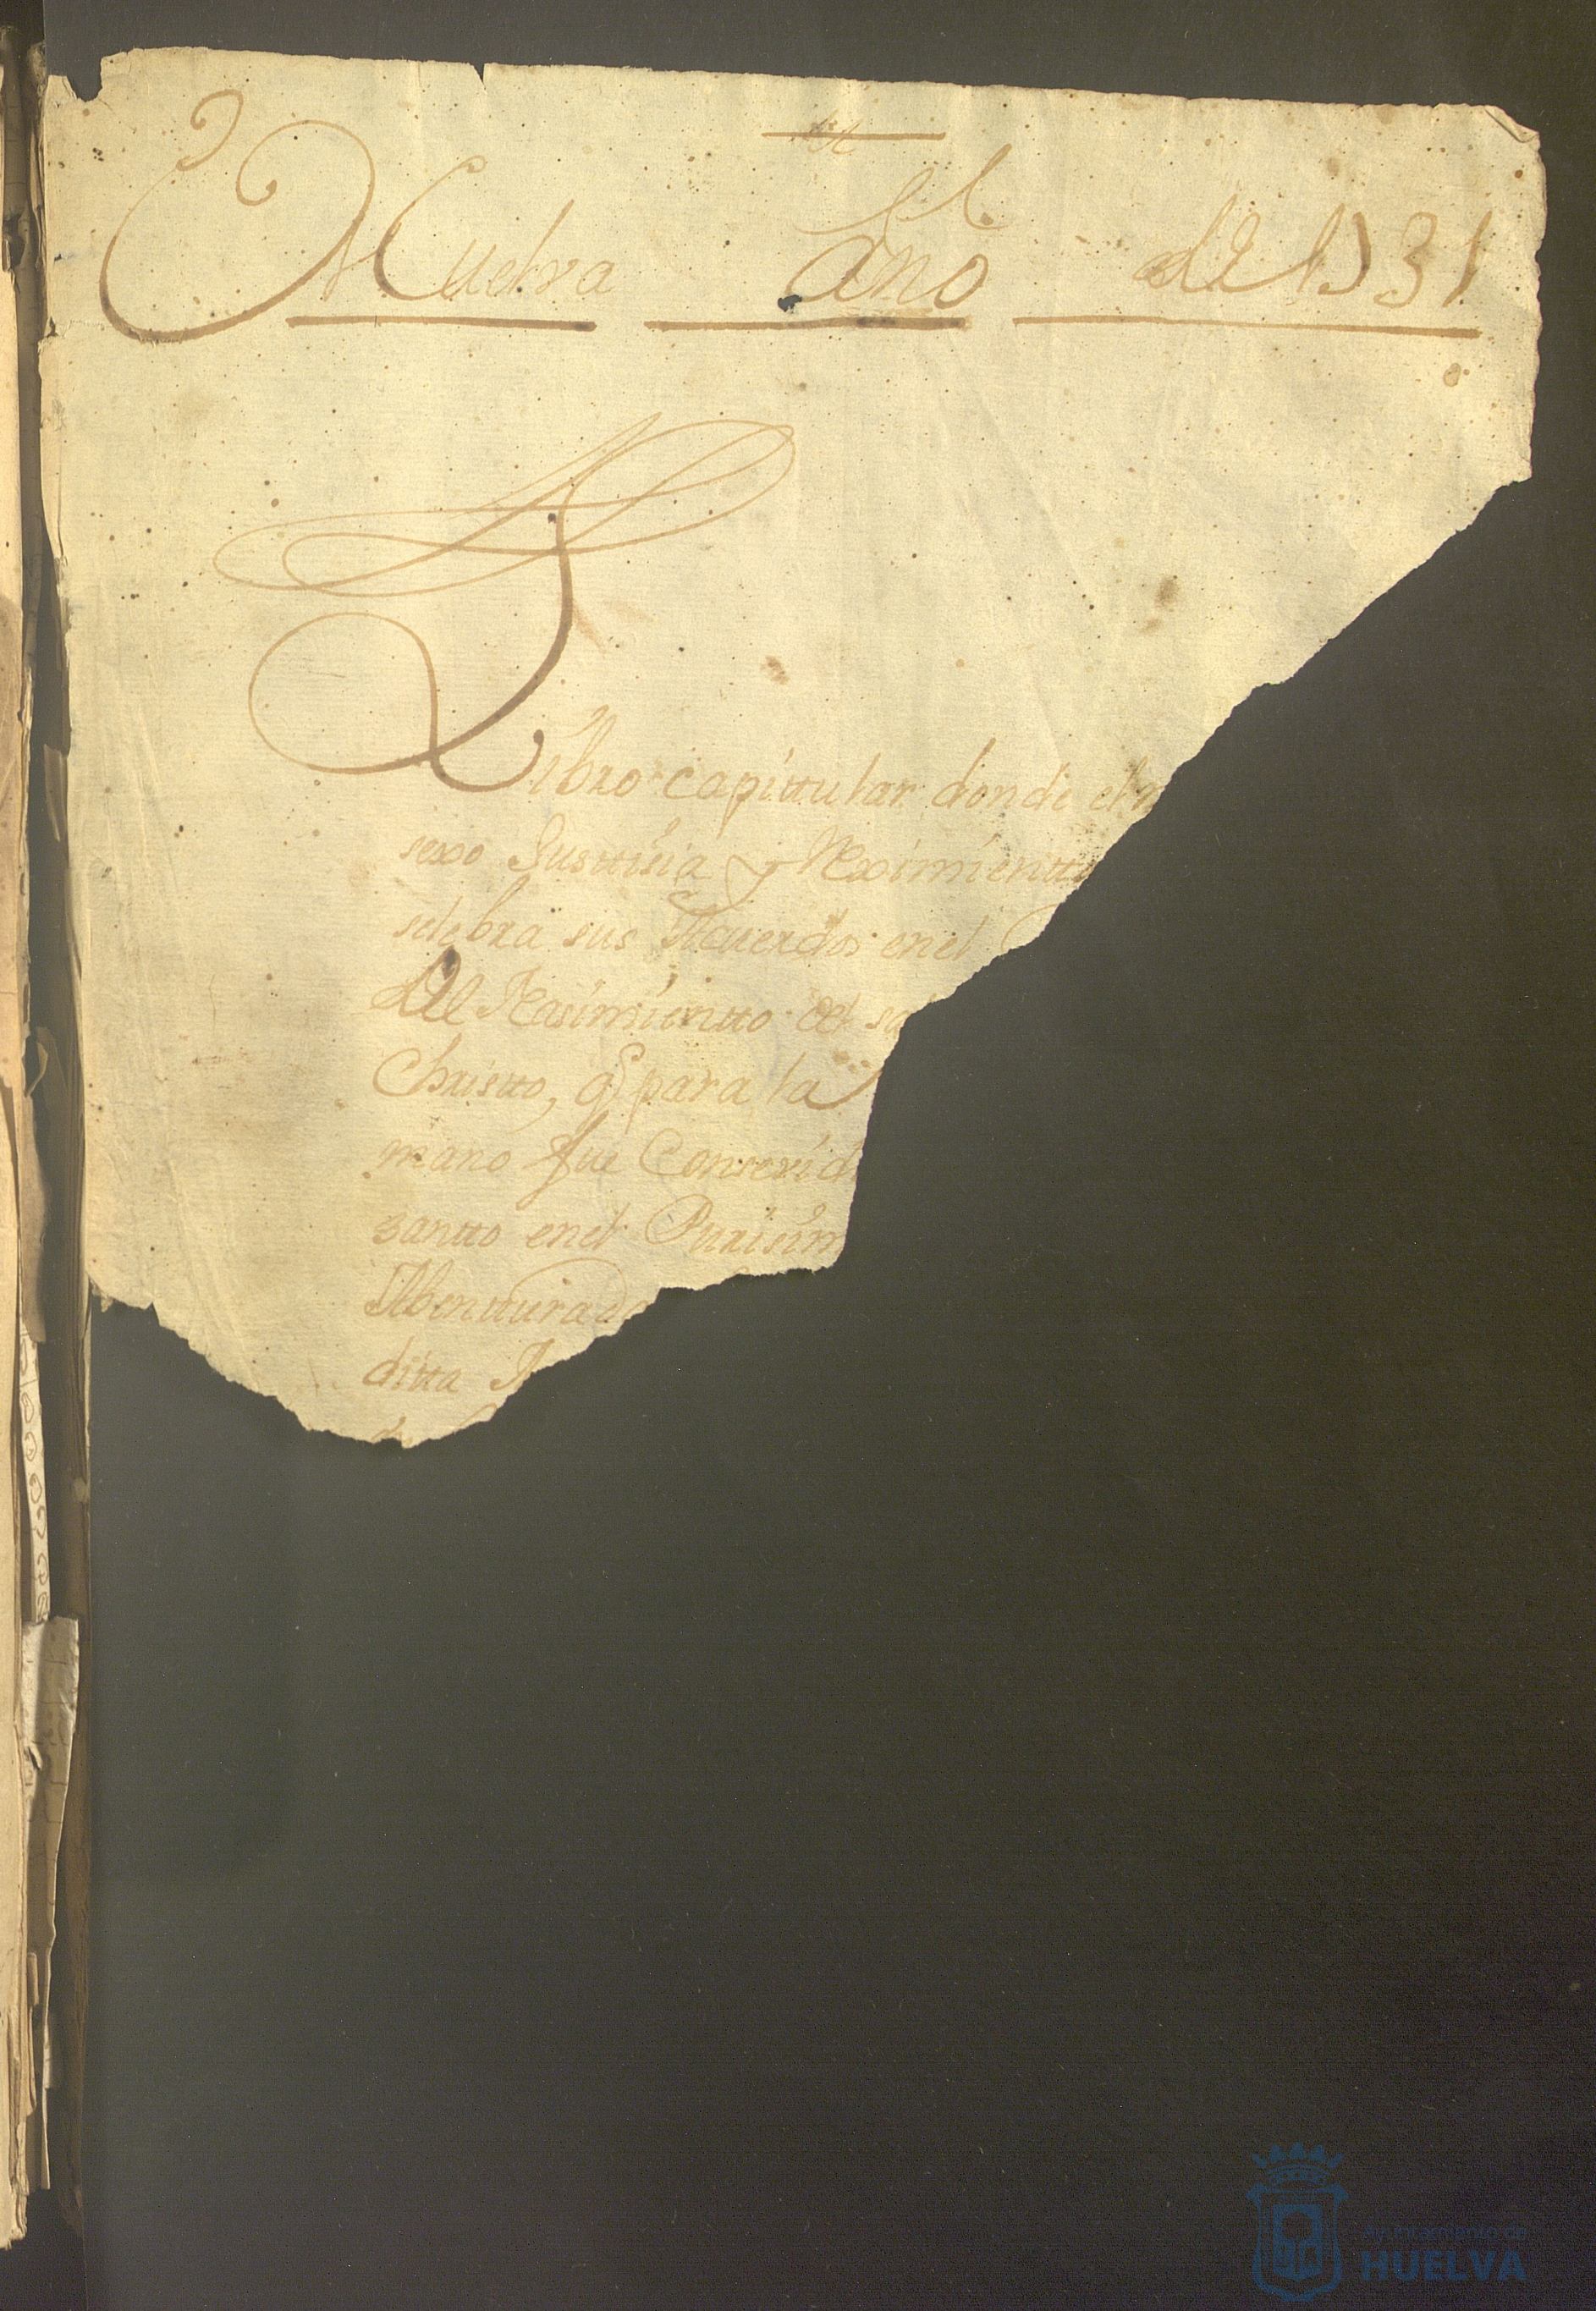 Huelva Año de 1731
Libro capittular donde el
sexo Justtisia y Reximientto
selebra sus Acuerdos en el
del Nasimientto del sa
Christto, q para la
mano fue Conseuid
santto en el Purisim
Abentturado
ditta
Ayuntamiento de
HUELVA